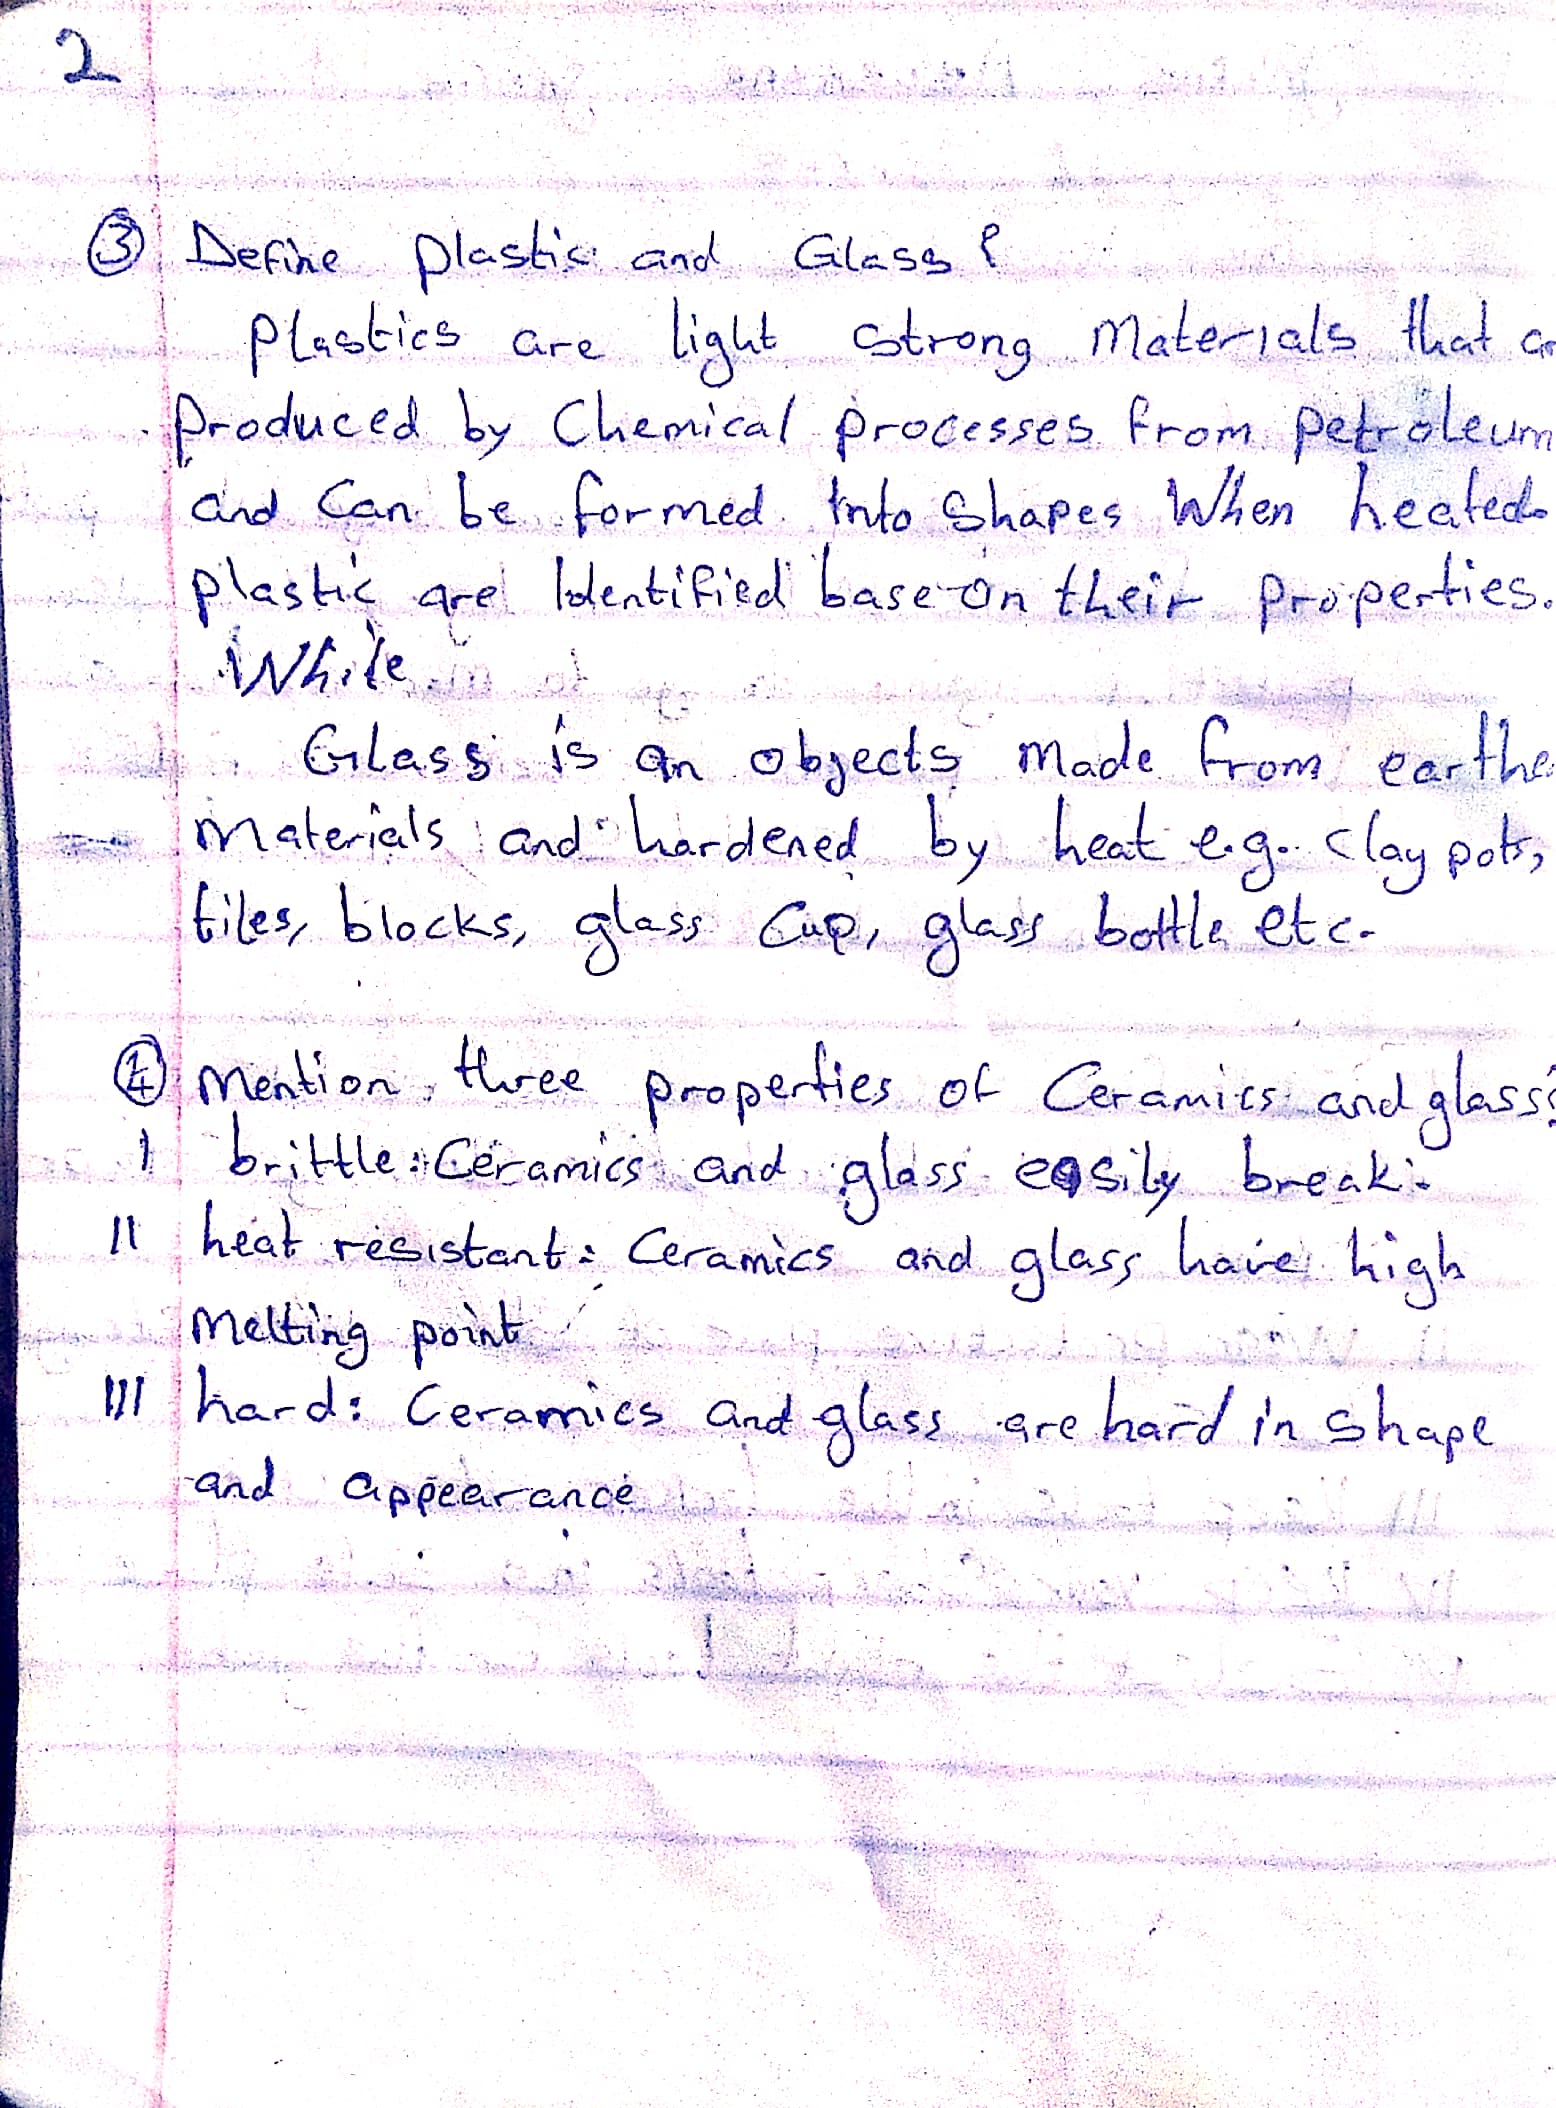 2
③ Define plastic and Glass?
Plastics are light strong Materials that
produced by Chemical processes from petroleum
and Can be formed into Shapes When heated.
plastic are Identified base on their properties.
While
Glass is an objects made from earthe
Materials and hardened by heat e.g. Clay pots,
tiles, blocks, glass Cup, glass bottle etc.
④ Mention three properties of Ceramics and glass?
I brittle: Ceramics and glass easily break.
II heat resistant: Ceramics and glass have high
Melting point
III hard: Ceramics and glass are hard in Shape
and appearance